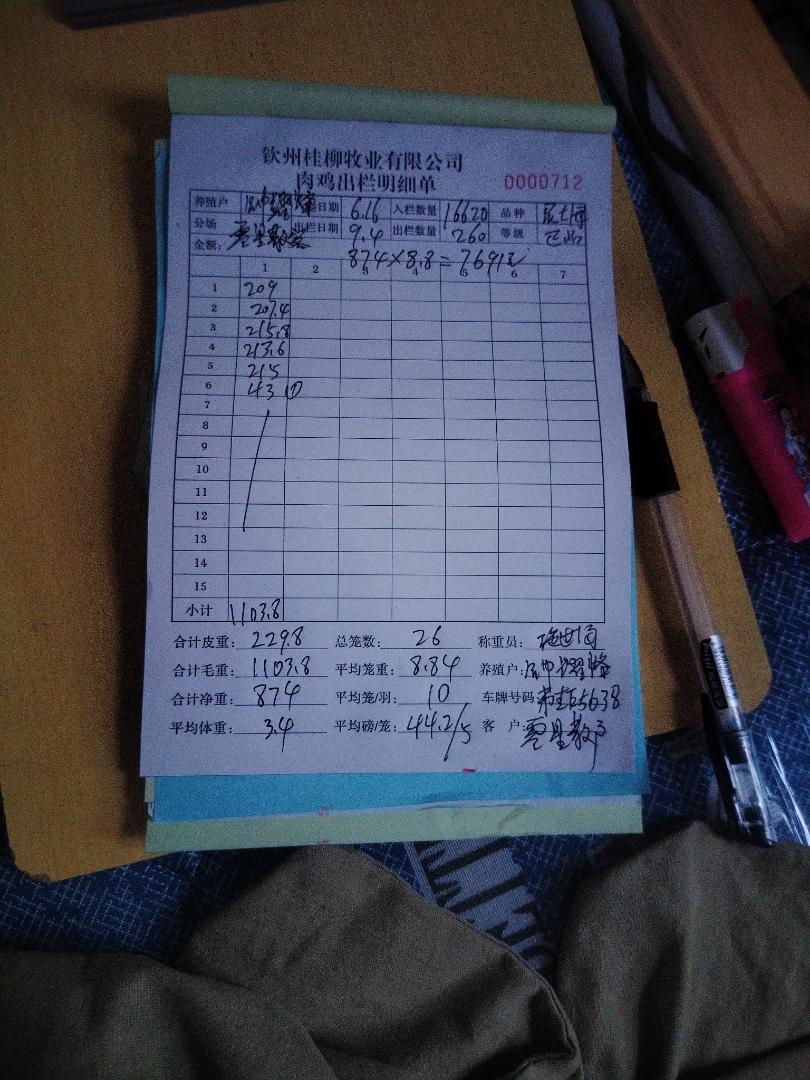 钦州桂柳牧业有限公司
肉鸡出栏明细单 0000712
养殖户 栏日期 6.16 入栏数量 16620 品种
分场 出栏日期 9.4 出栏数量 260 等级 正品
金额： 874×8.8=7691元
1 2 3 4 5 6 7
1 209
2 207.4
3 215.8
4 213.6
5 215
6 43 ①
7
8
9
10
11
12
13
14
15
小计 1103.8
合计皮重： 229.8 总笼数： 26 称重员：
合计毛重： 1103.8 平均笼重： 8.84 养殖户：
合计净重： 874 平均笼/羽： 10 车牌号码 5638
平均体重： 3.4 平均磅/笼： 44.2/5 客 户：